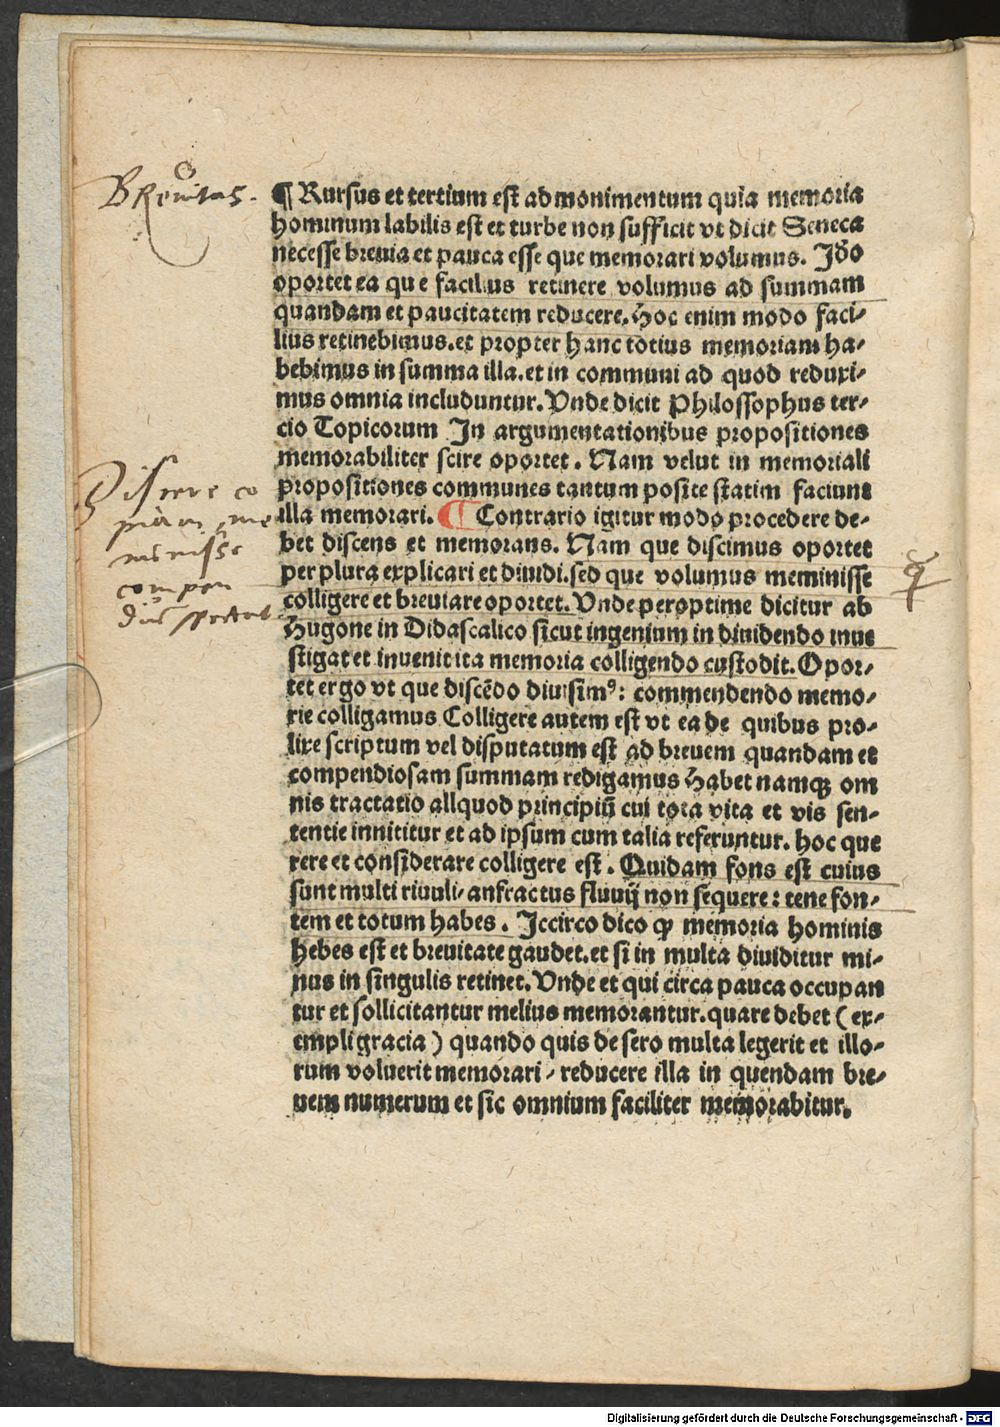 BRevitas.
¶ Rursus et tertium est ad monimentum quia memoria
hominum labilis est et turbe non sufficit vt dicit Seneca
necesse breuia et pauca esse que memorari volumus. Ido
oportet ea que facilius retinere volumus ad summam
quandam et paucitatem reducere. Hoc enim modo faci⸗
lius retinebimus. et propter hanc totius memoriam ha⸗
bebimus in summa illa. et in communi ad quod reduxi⸗
mus omnia includuntur. Vnde dicit Philossophus ter⸗
cio Topicorum In argumentationibus propositiones
memorabiliter scire oportet. Nam velut in memoriali
propositiones communes tantum posite statim faciunt
illa memorari. ¶ Contrario igitur modo procedere de⸗
bet discens et memorans. Nam que discimus oportet
per plura explicari et diuidi. sed que volumus meminisse
colligere et breuiare oportet. Vnde peroptime dicitur ab
Hugone in Didascalico sicut ingenium in diuidendo inue
stigat et inuenit ita memoria colligendo custodit. Opor⸗
tet ergo vt que discēdo diuisimꝰ: commendendo memo⸗
rie colligamus Colligere autem est vt ea de quibus pro⸗
lixe scriptum vel disputatum est ad breuem quandam et
compendiosam summam redigamus Habet namqꝫ om
nis tractatio allquod principiū cui tota vita et vis sen⸗
tentie innititur et ad ipsum cum talia referuntur. hoc que
rere et considerare colligere est. Quidam fons est cuius
sunt multi riuuli⸗ anfractus fluuij non sequere: tene fon⸗
tem et totum habes. Iccirco dico ꝙ memoria hominis
hebes est et breuitate gaudet. et si in multa diuiditur mi⸗
nus in singulis retinet. Vnde et qui circa pauca occupan
tur et sollicitantur melius memorantur. quare debet (ex⸗
empli gracia) quando quis de sero multa legerit et illo⸗
rum voluerit memorari⸗ reducere illa in quendam bre⸗
uem numerum et sic omnium faciliter memorabitur.
Discere co
piam, me
minisse
compen
diū spectat
Digitalisierung gefördert durch die Deutsche Forschungsgemeinschaft - DFG